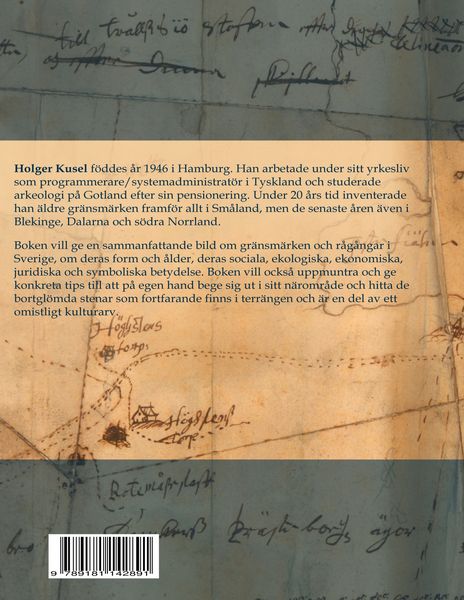 till
Holger Kusel föddes år 1946 i Hamburg. Han arbetade under sitt yrkesliv
som programmerare/systemadministratör i Tyskland och studerade
arkeologi på Gotland efter sin pensionering. Under 20 års tid inventerade
han äldre gränsmärken framför allt i Småland, men de senaste åren även i
Blekinge, Dalarna och södra Norrland.
Boken vill ge en sammanfattande bild om gränsmärken och rågångar i
Sverige, om deras form och ålder, deras sociala, ekologiska, ekonomiska,
juridiska och symboliska betydelse. Boken vill också uppmuntra och ge
konkreta tips till att på egen hand bege sig ut i sitt närområde och hitta de
bortglömda stenar som fortfarande finns i terrängen och är en del av ett
omistligt kulturarv.
torp
ägor
9 789181 142891